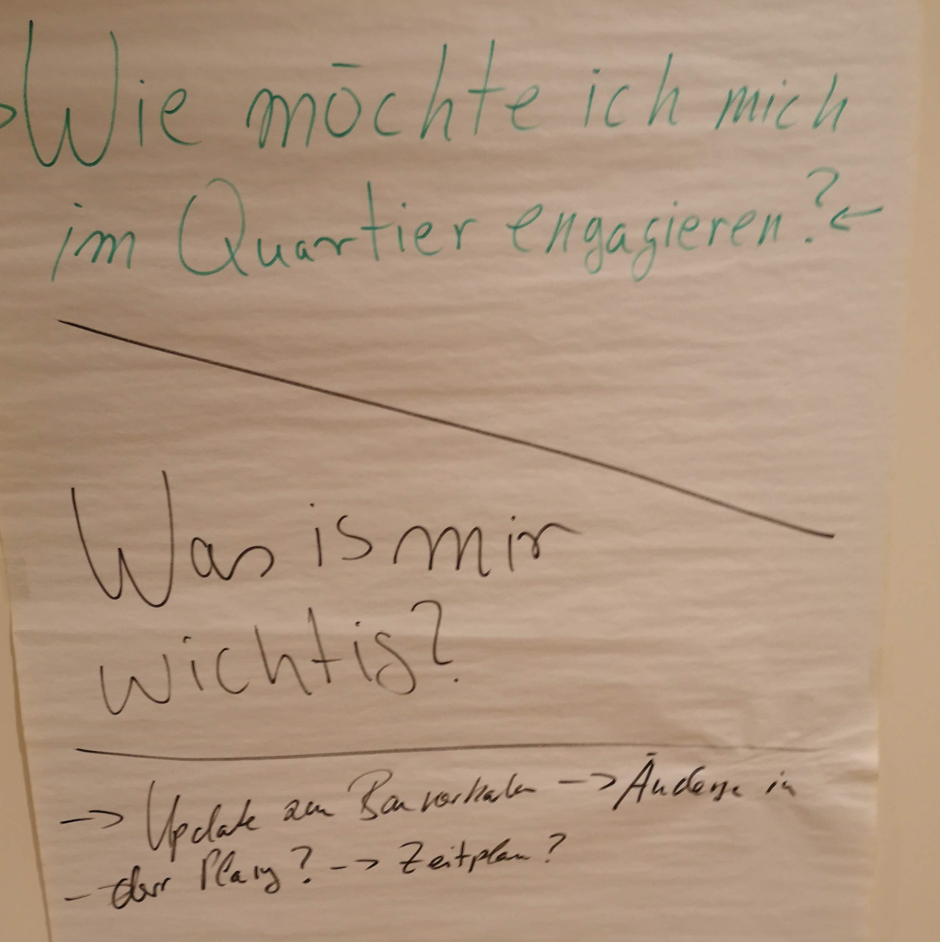 Wie möchte ich mich
im Quartier engagieren? ←
Was is mir
wichtig?
→ Update zum Bauvorhaben → Änderung in
- der Planung? → Zeitplan?